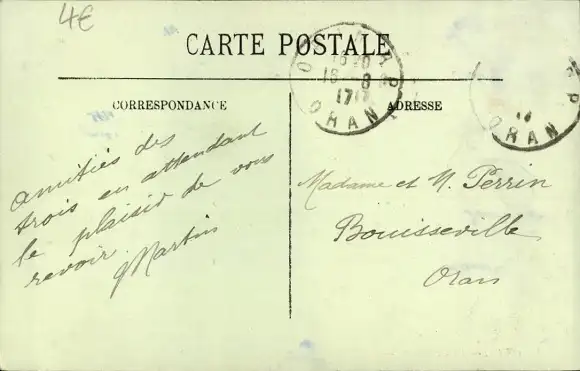 4€
CARTE POSTALE
ORAN R.P
16 20
16-8
17
ORAN
R P
ORAN
CORRESPONDANCE
ADRESSE
amitiés des
trois en attendant
le plaisir de vous
revoir.
GMartin
Madame et M. Perrin
Bouisseville
Oran